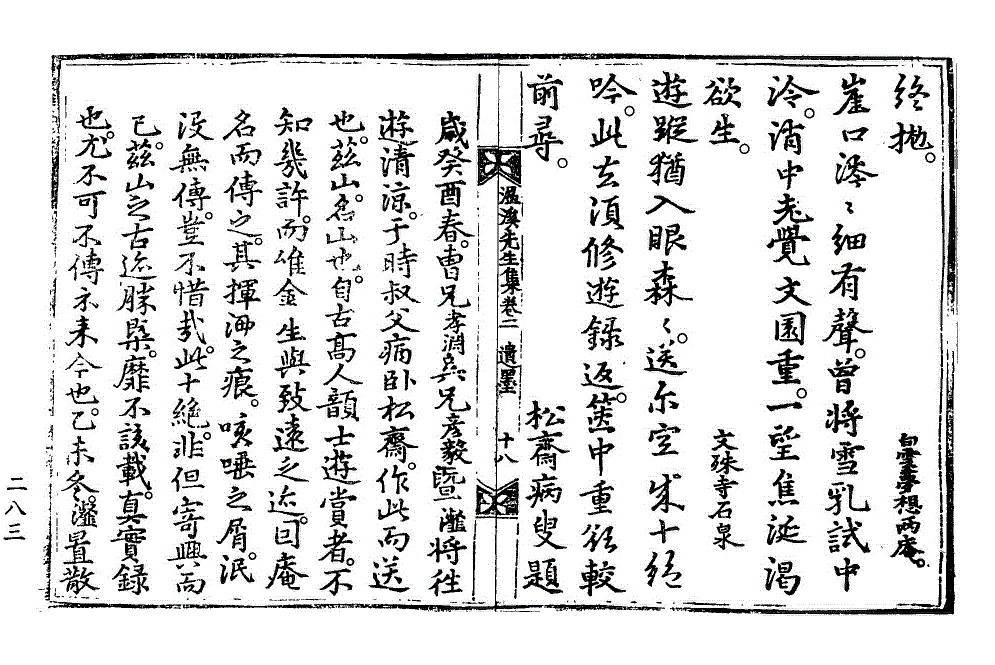 終抛。
白雲夢想兩庵。
崖口潺〻細有聲。曾將雪乳試中
泠。消中老覺文園重。一望焦涎渴
欲生。
文殊寺石泉
遊蹤猶入眼森〻。送尔空成十絶
吟。此去須修遊録返。篋中重欲較
前尋。
松齋病叟題
溫溪先生集卷二 遺墨 十八
歳癸酉春。曹兄孝淵吳兄彦毅暨瀣將徃
遊清凉。于時叔父病卧松齋。作此而送
也。茲山。名山也。自古高人韻士遊賞者。不
知幾許。而唯金生與致遠之迹。回庵
名而傳之。其揮洒之痕。咳唾之屑。泯
没無傳。豈不惜哉。此十絶。非但寄興而
已。茲山之古迹勝槩。靡不該載。真實録
也。尤不可不傳示来今也。乙未冬。瀣置散
二八三